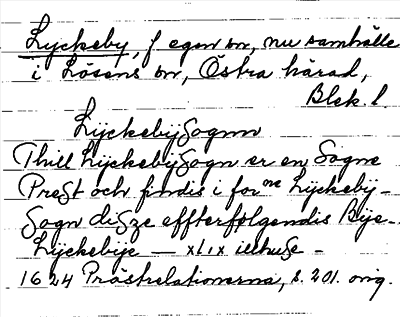 Lyckeby, f egen sn, nu samhälle
i Lösens sn, Östra härad,
Blek. l.
Lÿckebÿsognn
Thill Lÿckebÿsogn er en Sogne
Prest och findis i for^ne Lÿckebÿ-
Sogn disze effterfølgendis Bÿe-
Lÿckebÿe — xLıx
1624 Prästrelationerna, s. 201. orig.